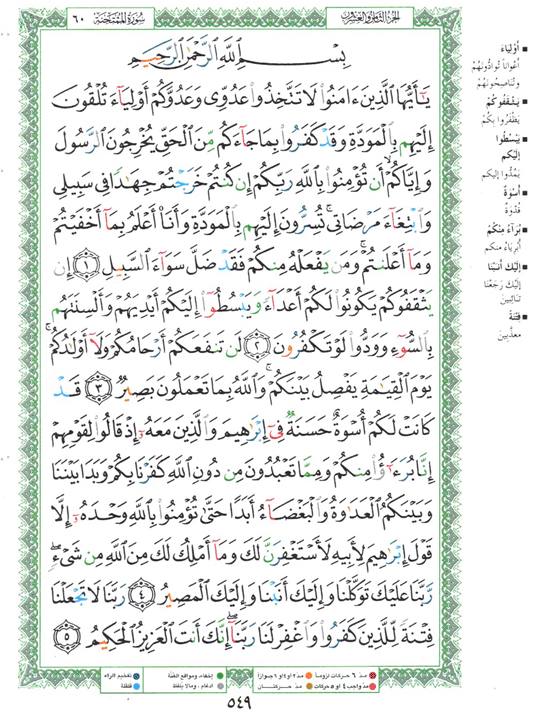 سُورَةُ الْمُمْتَحِنَةِ ٦٠
الجزء الثامن والعشرون
بِسْمِ اللَّهِ الرَّحْمَٰنِ الرَّحِيمِ
يَٰٓأَيُّهَا الَّذِينَ ءَامَنُوا لَا تَتَّخِذُوا عَدُوِّى وَعَدُوَّكُمْ أَوْلِيَآءَ تُلْقُونَ
إِلَيْهِم بِالْمَوَدَّةِ وَقَدْ كَفَرُوا بِمَا جَآءَكُم مِّنَ الْحَقِّ يُخْرِجُونَ الرَّسُولَ
وَإِيَّاكُمْ أَن تُؤْمِنُوا بِاللَّهِ رَبِّكُمْ إِن كُنتُمْ خَرَجْتُمْ جِهَٰدًا فِى سَبِيلِى
وَابْتِغَآءَ مَرْضَاتِى تُسِرُّونَ إِلَيْهِم بِالْمَوَدَّةِ وَأَنَا۠ أَعْلَمُ بِمَآ أَخْفَيْتُمْ
وَمَآ أَعْلَنتُمْ وَمَن يَفْعَلْهُ مِنكُمْ فَقَدْ ضَلَّ سَوَآءَ السَّبِيلِ ١ إِن
يَثْقَفُوكُمْ يَكُونُوا لَكُمْ أَعْدَآءً وَيَبْسُطُوٓا إِلَيْكُمْ أَيْدِيَهُمْ وَأَلْسِنَتَهُم
بِالسُّوٓءِ وَوَدُّوا لَوْ تَكْفُرُونَ ٢ لَن تَنفَعَكُمْ أَرْحَامُكُمْ وَلَآ أَوْلَٰدُكُمْ
يَوْمَ الْقِيَٰمَةِ يَفْصِلُ بَيْنَكُمْ وَاللَّهُ بِمَا تَعْمَلُونَ بَصِيرٌ ٣ قَدْ
كَانَتْ لَكُمْ أُسْوَةٌ حَسَنَةٌ فِىٓ إِبْرَٰهِيمَ وَالَّذِينَ مَعَهُۥٓ إِذْ قَالُوا لِقَوْمِهِمْ
إِنَّا بُرَءَٰٓؤُا مِنكُمْ وَمِمَّا تَعْبُدُونَ مِن دُونِ اللَّهِ كَفَرْنَا بِكُمْ وَبَدَا بَيْنَنَا
وَبَيْنَكُمُ الْعَدَٰوَةُ وَالْبَغْضَآءُ أَبَدًا حَتَّىٰ تُؤْمِنُوا بِاللَّهِ وَحْدَهُۥٓ إِلَّا
قَوْلَ إِبْرَٰهِيمَ لِأَبِيهِ لَأَسْتَغْفِرَنَّ لَكَ وَمَآ أَمْلِكُ لَكَ مِنَ اللَّهِ مِن شَىْءٍ
رَّبَّنَا عَلَيْكَ تَوَكَّلْنَا وَإِلَيْكَ أَنَبْنَا وَإِلَيْكَ الْمَصِيرُ ٤ رَبَّنَا لَا تَجْعَلْنَا
فِتْنَةً لِّلَّذِينَ كَفَرُوا وَاغْفِرْ لَنَا رَبَّنَآ إِنَّكَ أَنتَ الْعَزِيزُ الْحَكِيمُ ٥
أَوْلِيَاءَ
أعواناً توادّونهم
وتناصحونهم
يَثْقَفُوكُمْ
يظفروا بكم
يَبْسُطُوا
إِلَيْكُمْ
يمدّوا إليكم
أُسْوَةٌ
قدوة
بُرَآءُ مِنكُمْ
أبرياء منكم
إِلَيْكَ أَنَبْنَا
إليك رجعنا
تائبين
فِتْنَةً
معذّبين
مدّ ٦ حركات لزوماً
مدّ ٢ أو ٤ أو ٦ جوازاً
إخفاء، ومواقع الغنّة
تفخيم الراء
مدّ واجب ٤ أو ٥ حركات
مدّ حركتان
ادغام، وما لا يلفظ
قلقلة
٥٤٩